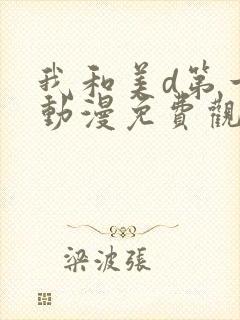 我和美d第一
動漫免費觀
梁波張